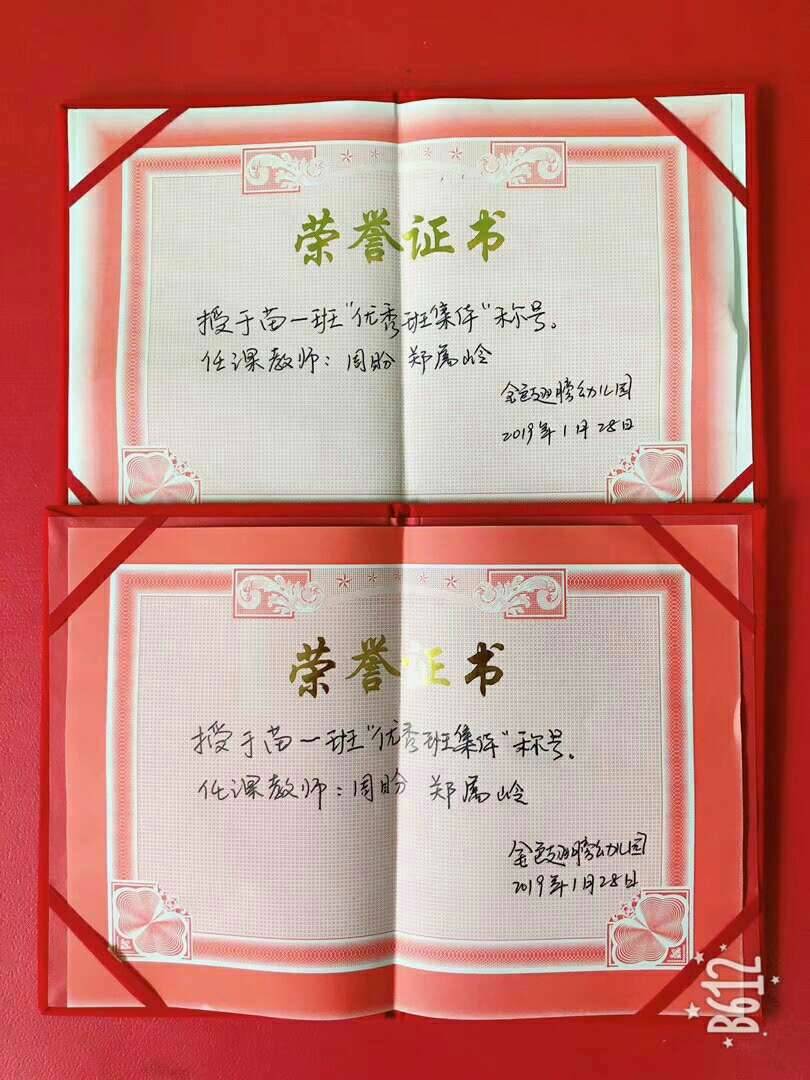 荣誉证书
授于苗一班“优秀班集体”称号。
任课教师：周盼 郑属岭
金色翅膀幼儿园
2019年1月28日
荣誉证书
授于苗一班“优秀班集体”称号。
任课教师：周盼 郑属岭
金色翅膀幼儿园
2019年1月28日
B612